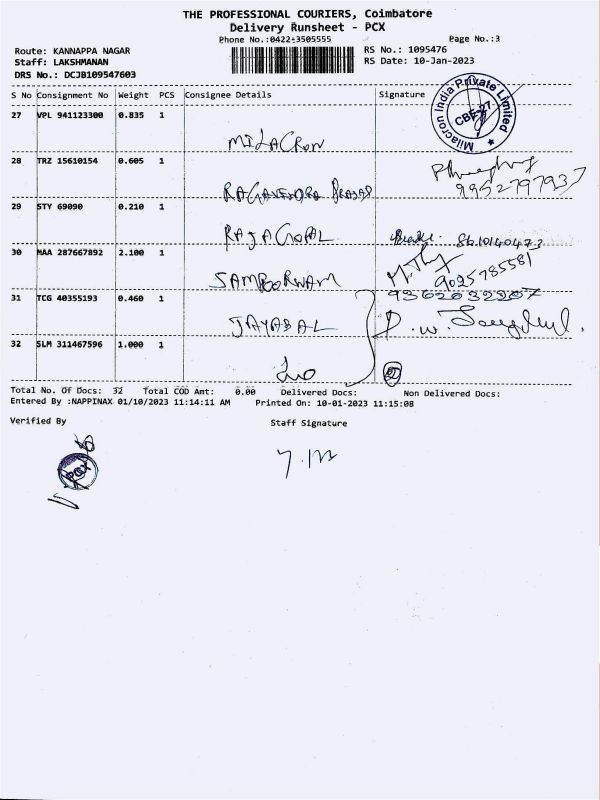 THE PROFESSIONAL COURIERS, Coimbatore
Delivery Runsheet - PCX
Phone No.:0422-3505555
Page No.:3
Route: KANNAPPA NAGAR
RS No.: 1095476
Staff: LAKSHMANAN
RS Date: 10-Jan-2023
DRS No.: DCJB109547603
S No Consignment No Weight PCS Consignee Details Signature
27 VPL 941123300 0.835 1
MILACRON
Milacron India Private Limited
CBE-27
28 TRZ 15610154 0.605 1
RAGAVENDRA PRASAD
9952797937
29 STY 69090 0.210 1
RAJAGOPAL
8610140473
30 MAA 287667892 2.100 1
SAMPOORNAM
9025785581
31 TCG 40355193 0.460 1
9362632207
JAYABAL
32 SLM 311467596 1.000 1
Total No. Of Docs: 32 Total COD Amt: 0.00 Delivered Docs: Non Delivered Docs:
Entered By :NAPPINAX 01/10/2023 11:14:11 AM Printed On: 10-01-2023 11:15:08
Verified By
Staff Signature
PCX